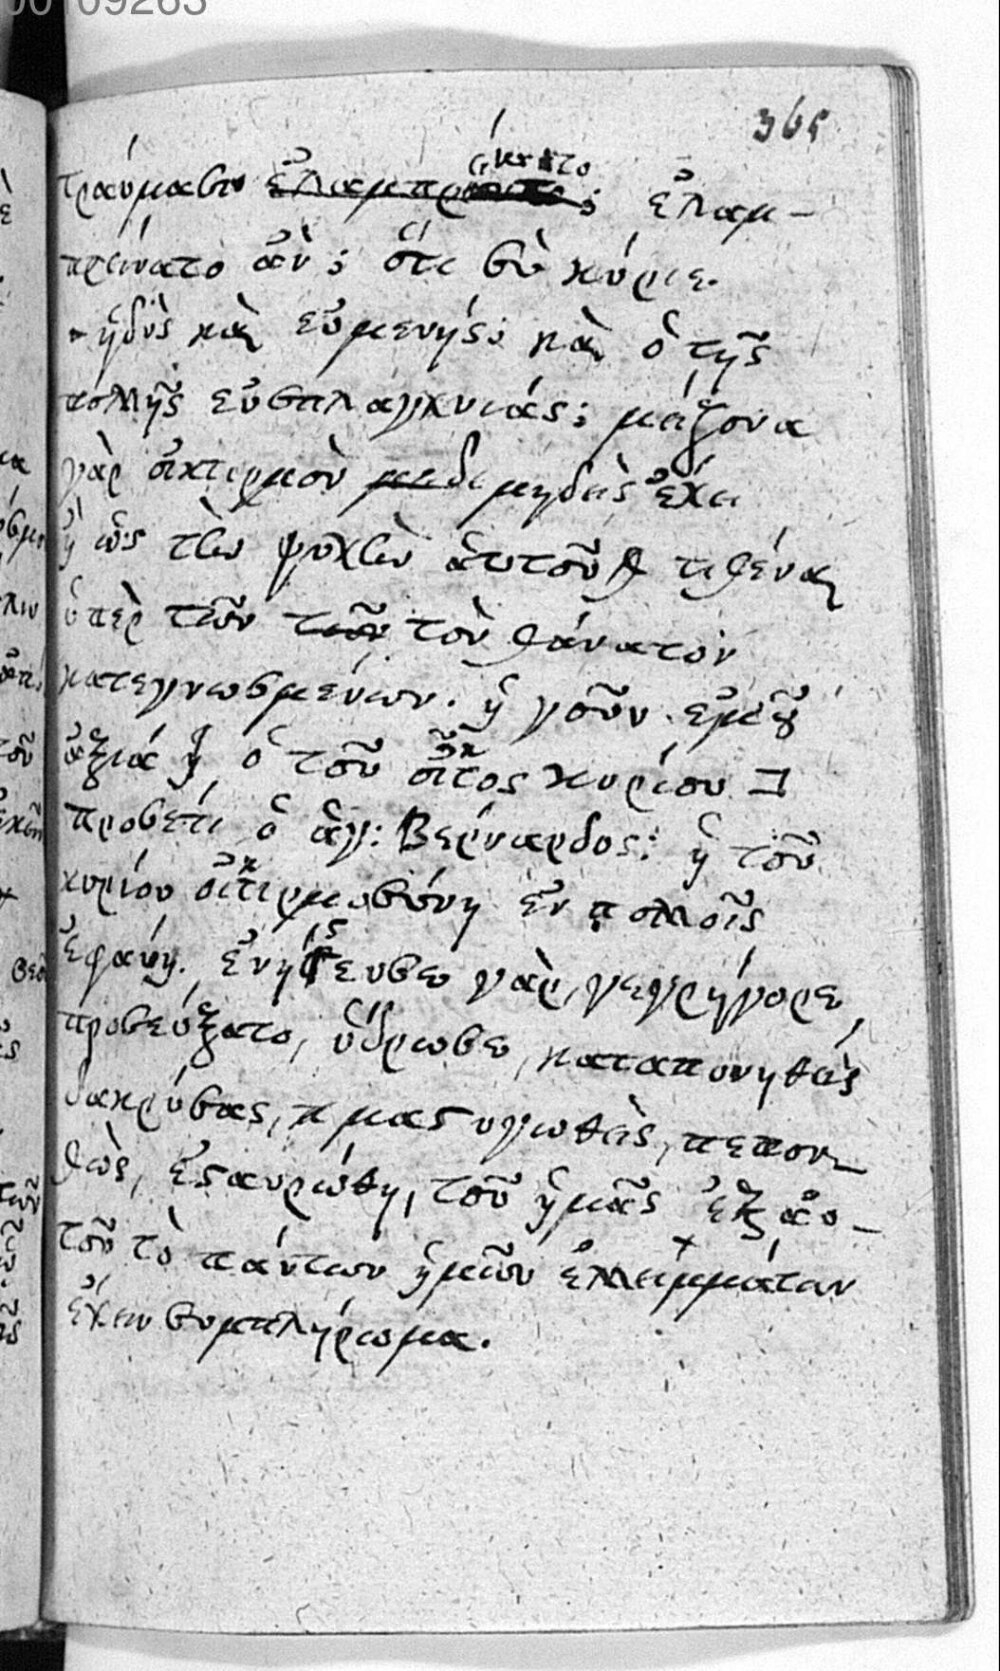 00 09263
365
τραύμασιν ἐλαμπρύνατο; ἐλαμ-
πρύνατο ἂν; ὅτι σὺ κύριε.
ἡδὺς καὶ εὐμενής; καὶ ὁ τῆς
πολλῆς εὐσπλαγχνιάς; μείζονα
γὰρ οἰκτιρμὸν μηδεὶς ἔχει
ἢ ὡς τὴν ψυχὴν αὐτοῦ τιθέναι
ὑπὲρ τῶν τῶν τὸν θάνατον
κατεγνωσμένων. ἡ γοῦν ἐμοῦ
ἀξιά ὁ τοῦ οἶκτος κυρίου
προσέτι ὁ ἅγ: Βερνάρδος: ἡ τοῦ
κυρίου οἰκτιρμοσύνη ἐν πολλοῖς
ἐφάνη. ἐνήστευσεν γὰρ, γεγρήγορεν,
προσεύξατο, ὕδρωσεν, καταπονηθεὶς
δακρύσας, μαστιγωθεὶς, πεπον-
θὼς, ἐσταυρώθη, τοῦ ἡμᾶς ἐξ αὐ-
τοῦ τὸ πάντων ἡμῶν ἐλλειμμάτων
ἔχειν συμπλήρωμα.